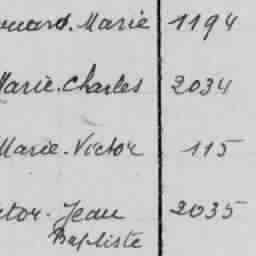 ouard. Marie 1194
Marie. Charles 2034
Marie. Victor 115
ctor. Jean 2035
Baptiste